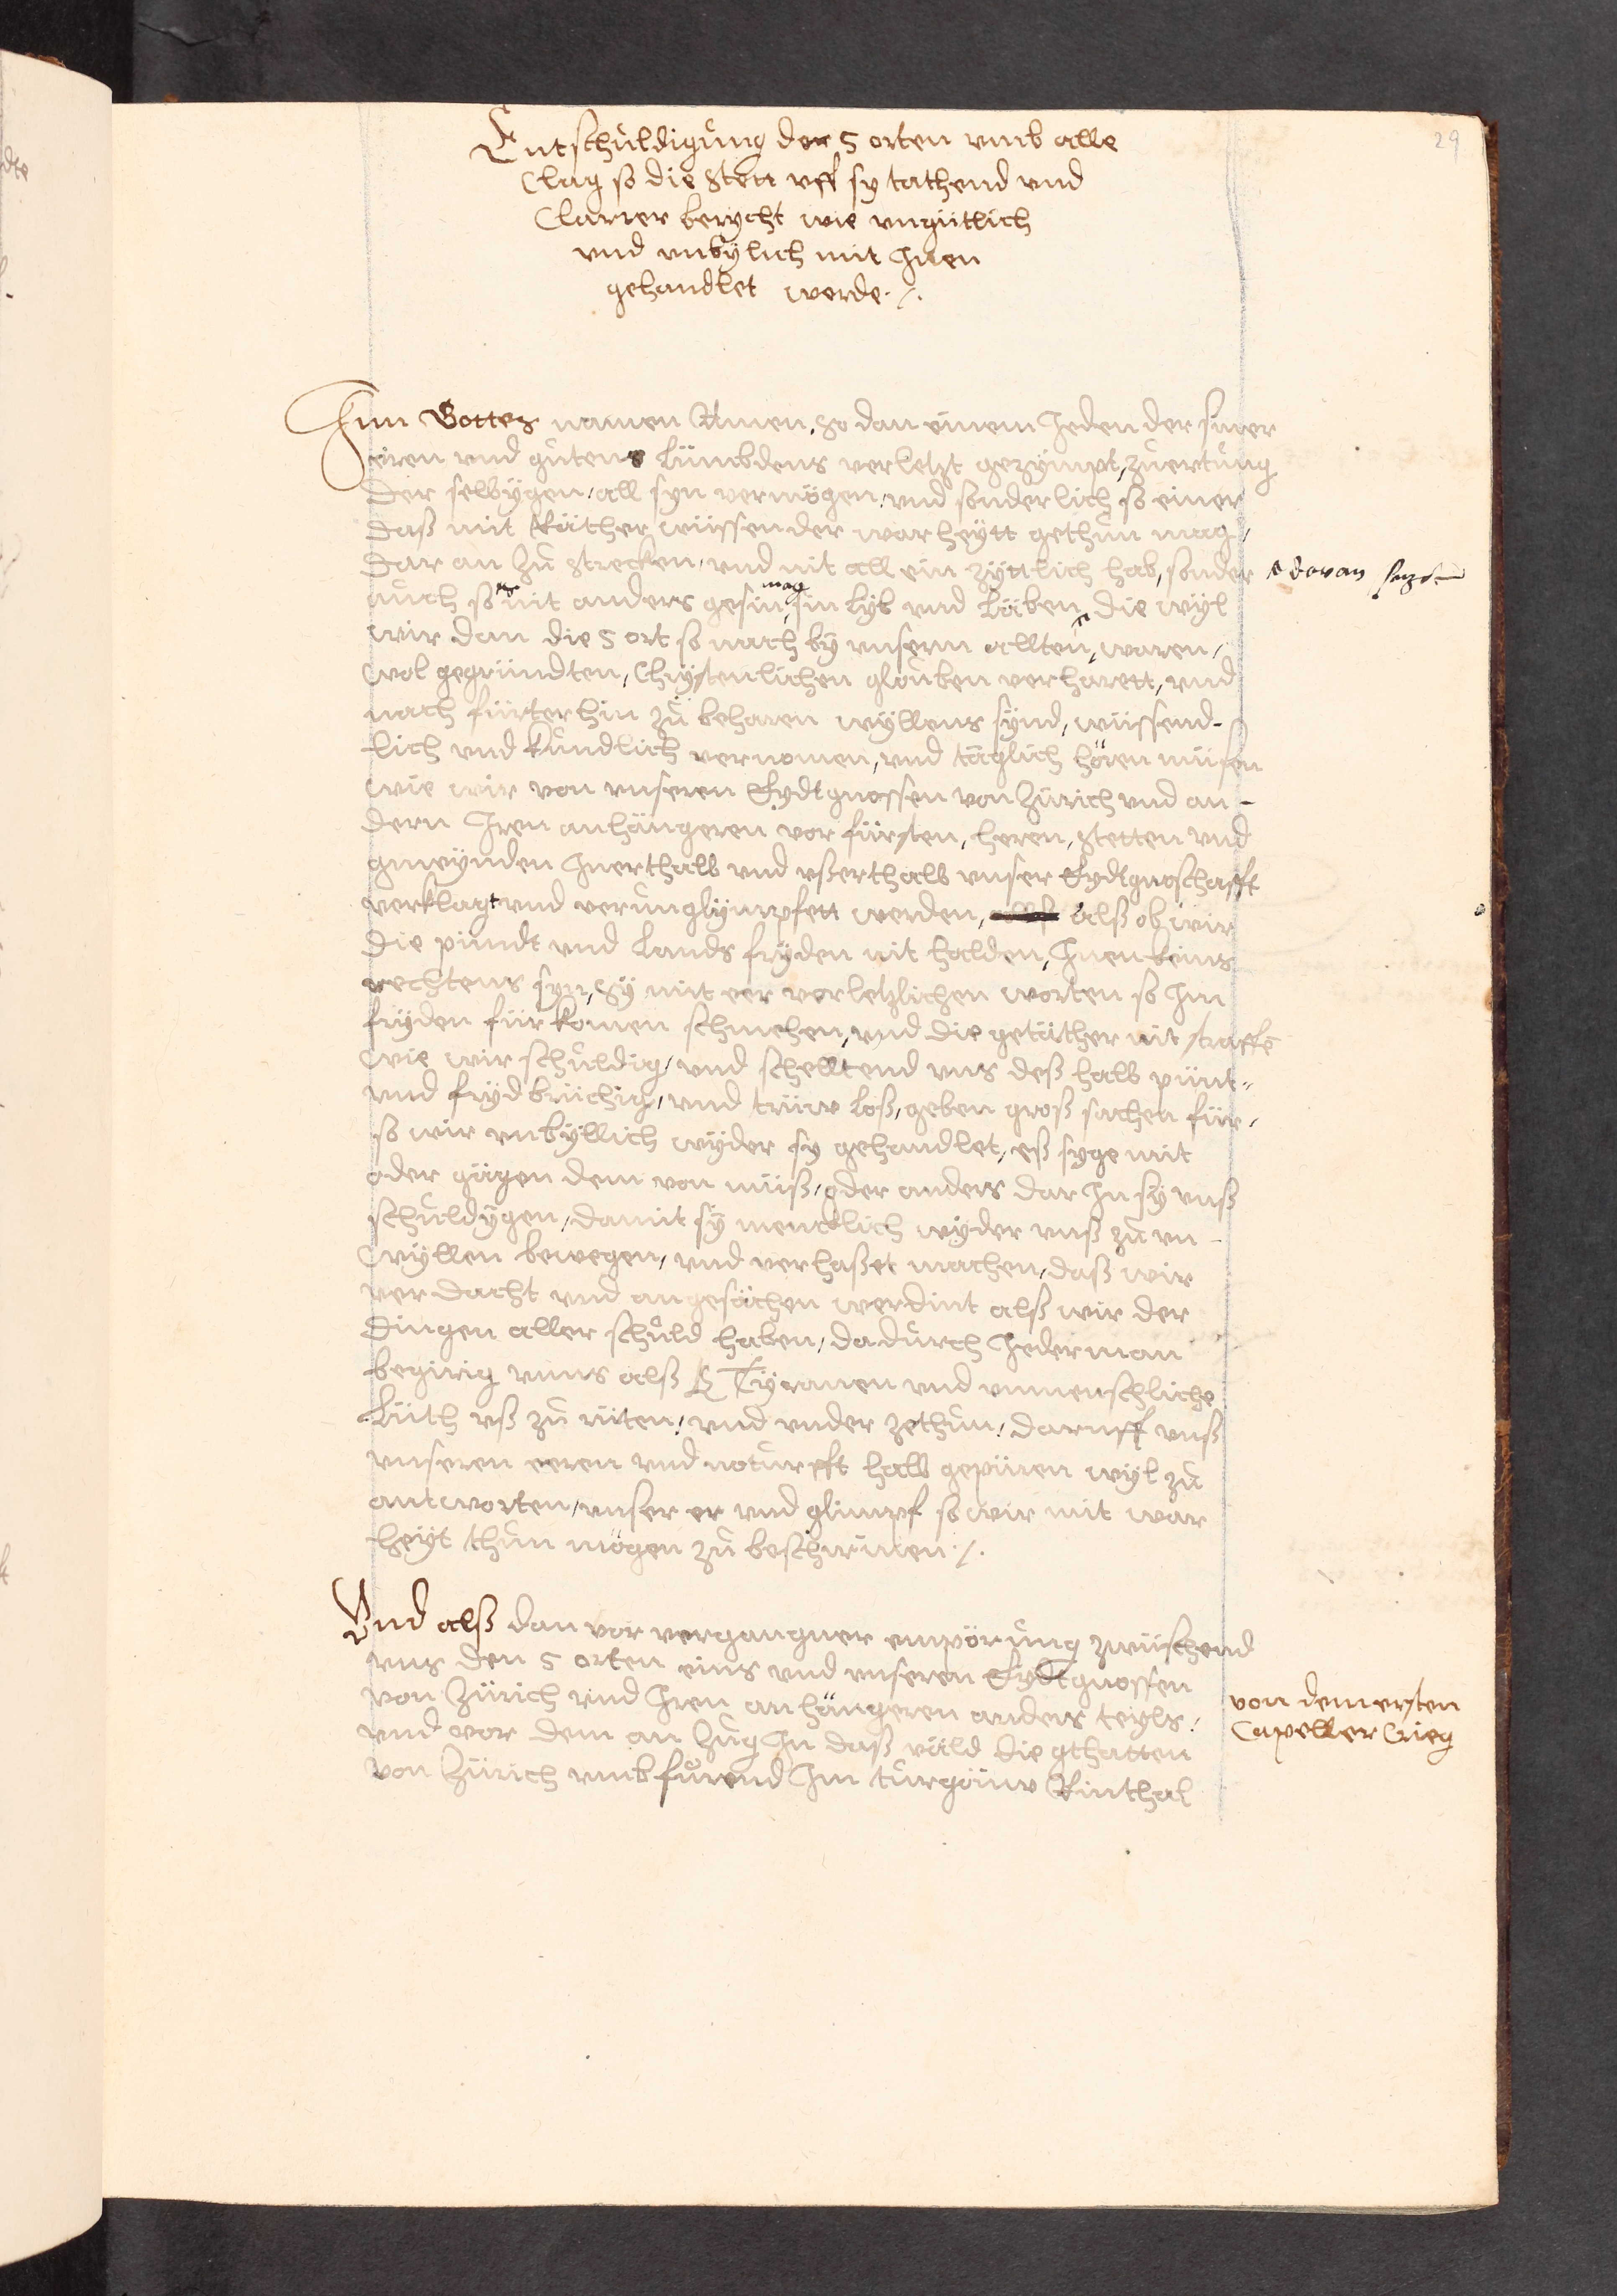 29
Entschuldigung der 5 orten vmb alle
Clag so die Stett vff sy tathend vnd
Clarrer berycht wie vngütlich
vnd vnbÿlich mit Jnen
gehandlet werde ./.
Jnn Gottes namen Amen. So dan einem Jeden der siner
eren vnd gůtens Lümbdens verletzt gezÿmpt, zů ertung
der selbÿgen, all syn vermögen, vnd sonderlich so einer
daß mit Räther wüssen der warheÿtt gethůn mag,
dar an zů strecken, vnd nit allein zÿttlich hab, sonder
auch so es nit anders gesin mag, sin Lÿb vnd Läben, die wÿl
daran setzen
wir dan die 5 ort so nach bÿ vnserm allten, waren,
wol gegründten, Chrÿstenlichen glouben verharett, vnd
nach fürterhin zů beharen wÿllens sÿnd, wüssend-
lich vnd kundlich vernomen, vnd täglich hören müsen
wie wir von vnseren Eydtgnossen von Zürich vnd an-
dern Jren anhängeren vor fürsten, heren, Stetten vnd
gmeÿnden Jnerthalb vnd vßerthalb vnser Eydtgnoschafft
verklagt vnd verunglÿmpfett werden, alß ob wir
die pündt vnd Lands fryden nit halden, Jnen keins
rechtens syn, Sÿ mit eer verletzlichen worten so Jm
frÿden für komen schmehen, vnd die getäther nit straffē
wie wir schuldig, vnd schelltend vns deß halb pünt-
vnd frÿd brüchig, vnd trüw Loß, geben groß sachen für,
so wir vnbÿllich wÿder sy gehandlet, eß syge mit
oder gägen dem von müß, oder anders dar Jn sÿ vnß
schuldÿgen, damit sÿ mencklich wÿder vnß zů vn-
wÿllen bewegen, vnd verhaßet machen, daß wir
ver dacht vnd angesächen werdint alß wir der
dingen aller schuld haben, dadurch Jederman
begirig vnns alß Tÿranen vnd vnmenschliche
Lüth vß zů rüten, vnd vnder zethůn, daruff vnß
vnseren eeren vnd noturfft halb gepüren wÿl zů
antworten, vnser er vnd glimpf so wir mit war
heÿt thůn mögen zů beschirmen ./.
Vnd alß dan vor vergangner empörung zwüschend
vns den 5 orten eins vnd vnseren Eydtgnossen
von Zürich vnd Jren anhängeren anders teyls,
vnd vor dem an Zug Jn daß väld die gthatten
von Zürich vmbfůrend Jm turgöuw Rinthal
von dem ersten
Capeller Crieg